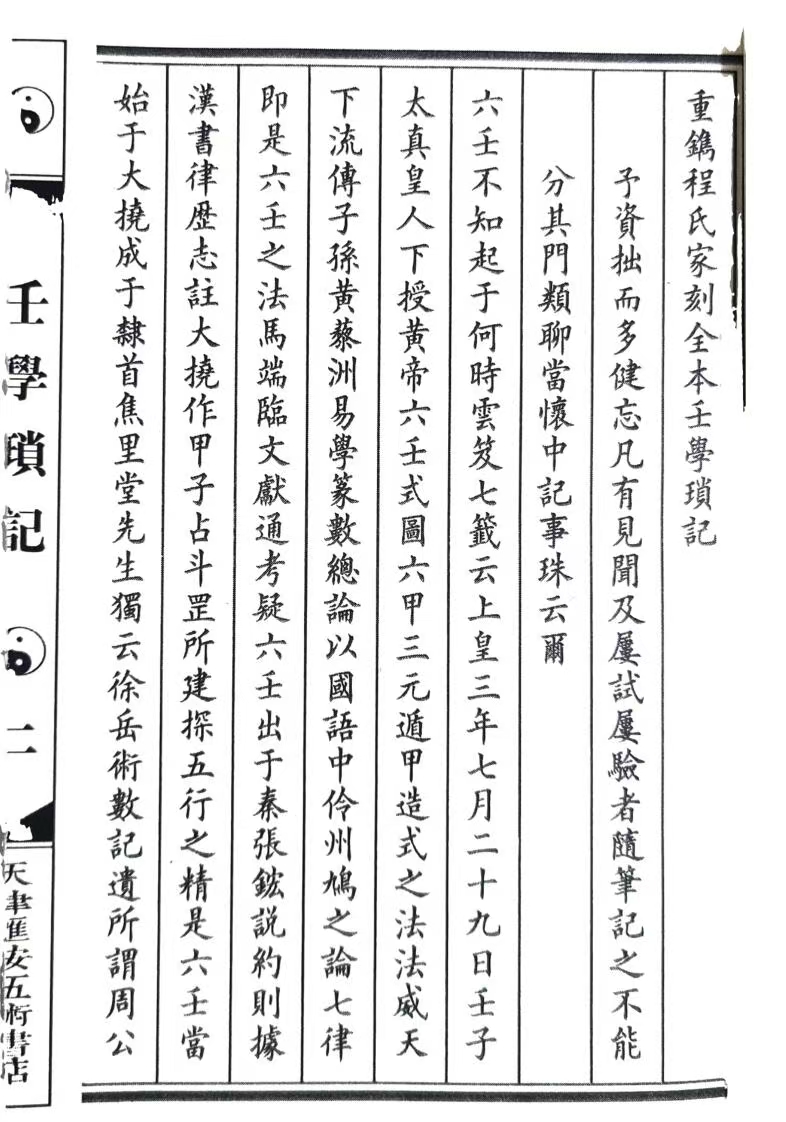 重鐫程氏家刻全本壬學瑣記
予資拙而多健忘凡有見聞及屢試屢驗者隨筆記之不能
分其門類聊當懷中記事珠云爾
六壬不知起于何時雲笈七籤云上皇三年七月二十九日壬子
太真皇人下授黄帝六壬式圖六甲三元遁甲造式之法法威天
下流傳子孫黄藜洲易學篆數總論以國語中伶州鳩之論七律
即是六壬之法馬端臨文獻通考疑六壬出于秦張鋐説約則據
漢書律歴志註大撓作甲子占斗罡所建探五行之精是六壬當
始于大撓成于隸首焦里堂先生獨云徐岳術數記遺所謂周公
壬學瑣記 二
天津匯安五術書店